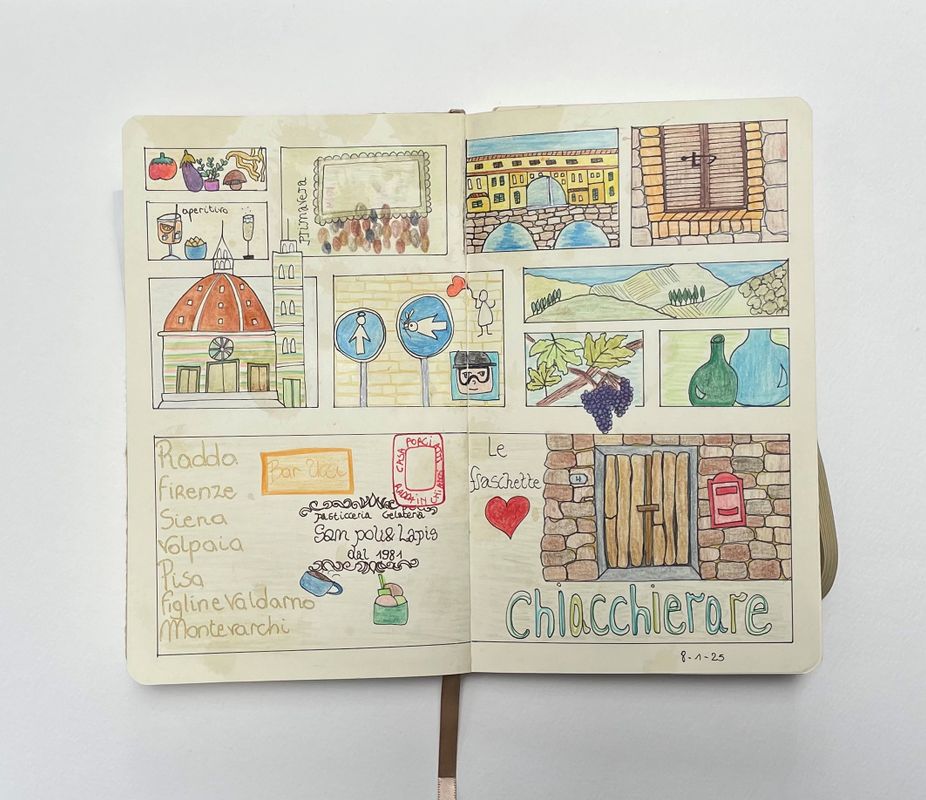 aperitivo
primavera
Radda
Firenze
Siena
Volpaia
Pisa
Figline Valdarno
Montevarchi
Bar Ucci
CASA PORCIATTI
RADDA IN CHIANTI
Pasticceria Gelateria
San poli& Lapis
dal 1981
Le
fraschette
Chiacchierare
8-1-25